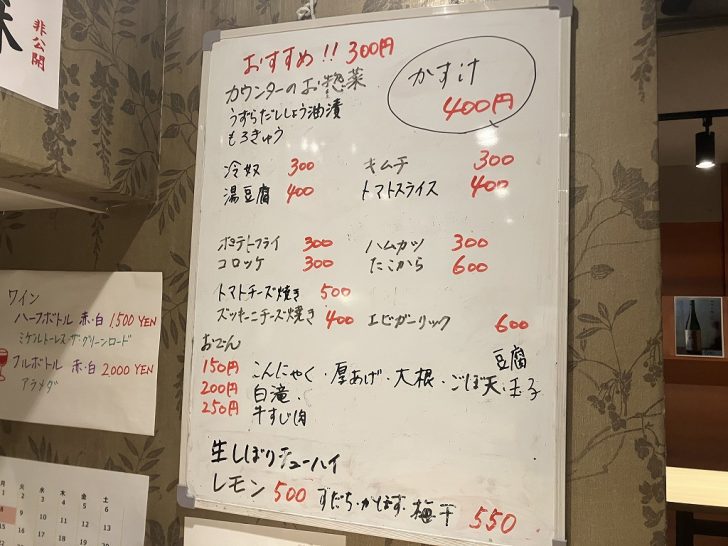 非公開
おすすめ!! 300円
かす汁
400円
カウンターのお惣菜
うずらだししょう油漬
もろきゅう
冷奴 300 キムチ 300
湯豆腐 400 トマトスライス 400
ポテトフライ 300 ハムカツ 300
コロッケ 300 たこから 600
トマトチーズ焼き 500
ズッキーニチーズ焼き 400 エビガーリック 600
おでん
豆腐
150円 こんにゃく・厚あげ・大根・ごぼ天・玉子
200円 白滝・
250円 牛すじ肉
生しぼりチューハイ
レモン 500 すだち・かぼす・梅干 550
ワイン
ハーフボトル 赤・白 1,500 YEN
ミケントーレス・ザ・グリーンロード
フルボトル 赤・白 2000 YEN
アラメダ
月 火 水 木 金 土
1 2 3 4 5 6
8 9 10 11 12 13
15 16 17 18 19 20
22 23 24 25 26 27